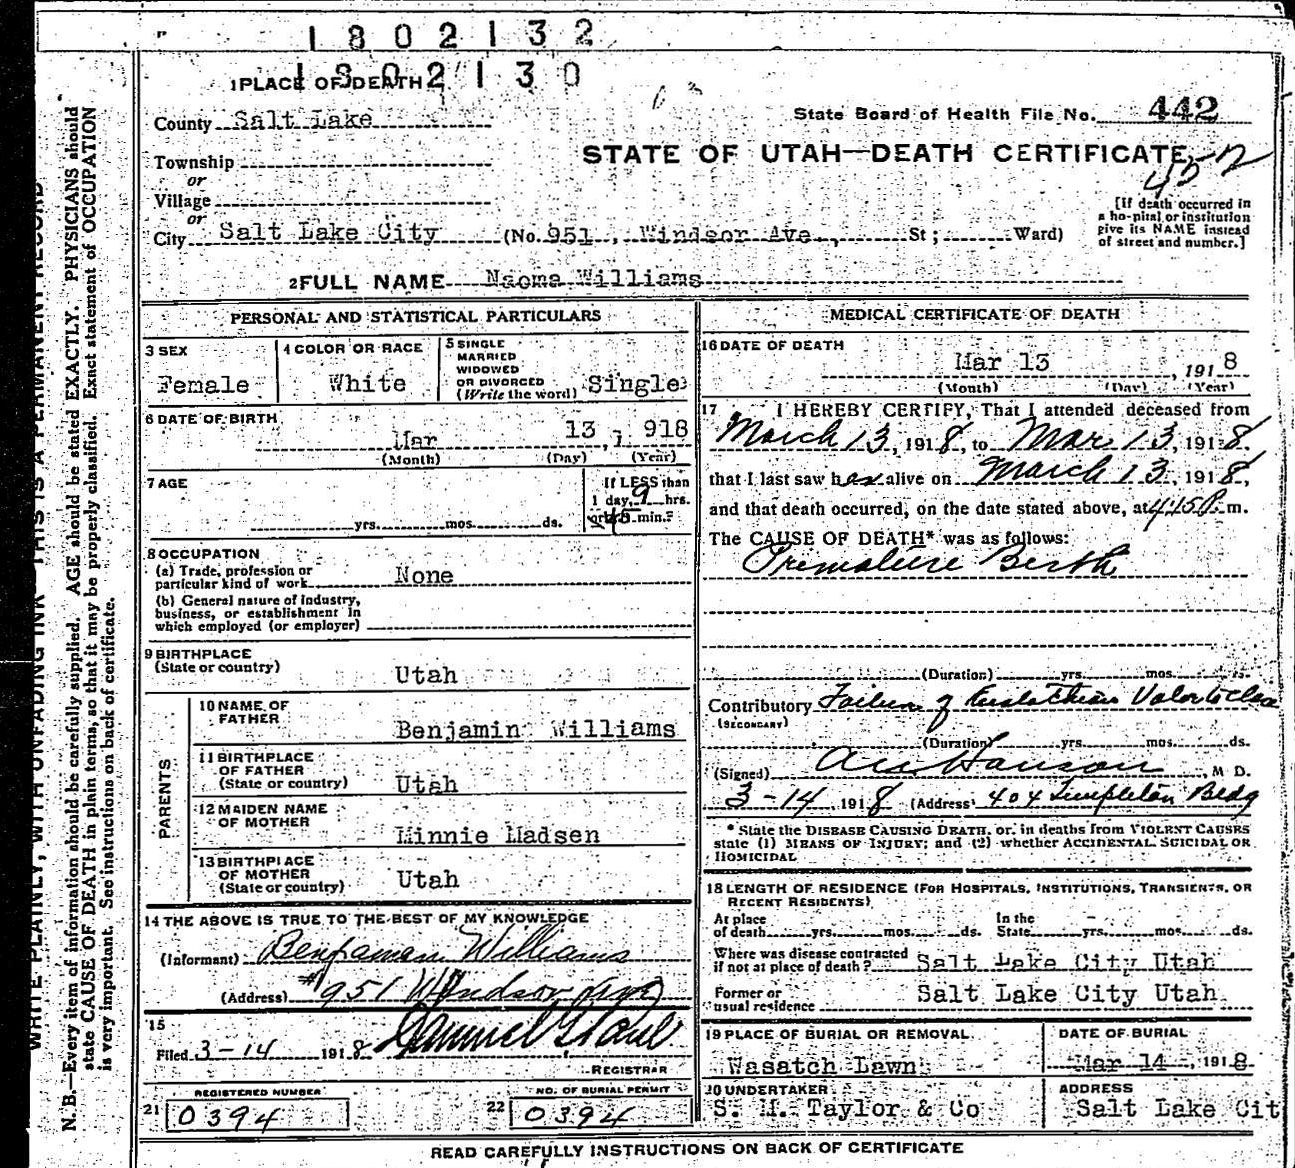 1802132
1802130
1 PLACE OF DEATH
County Salt Lake
State Board of Health File No. 442
STATE OF UTAH—DEATH CERTIFICATE
452
Township
or
Village
or
City Salt Lake City (No. 951, Windsor Ave., St; Ward)
[If death occurred in
a hospital or institution
give its NAME instead
of street and number.]
2 FULL NAME Naoma Williams
PERSONAL AND STATISTICAL PARTICULARS
3 SEX
Female
4 COLOR OR RACE
White
5 SINGLE
MARRIED
WIDOWED
OR DIVORCED
(Write the word) Single
6 DATE OF BIRTH
Mar 13, 1918
(Month) (Day) (Year)
7 AGE
yrs. mos. ds.
If LESS than
1 day, 9 hrs.
or 45 min.?
8 OCCUPATION
(a) Trade, profession or
particular kind of work None
(b) General nature of industry,
business, or establishment in
which employed (or employer)
9 BIRTHPLACE
(State or country)
Utah
PARENTS
10 NAME OF
FATHER
Benjamin Williams
11 BIRTHPLACE
OF FATHER
(State or country) Utah
12 MAIDEN NAME
OF MOTHER
Minnie Madsen
13 BIRTHPLACE
OF MOTHER
(State or country) Utah
14 THE ABOVE IS TRUE TO THE BEST OF MY KNOWLEDGE
(Informant) Benjaman Williams
(Address) #951 Windsor Ave
15
Filed 3-14 1918
REGISTRAR
REGISTERED NUMBER
21 0394
NO. OF BURIAL PERMIT
22 0394
MEDICAL CERTIFICATE OF DEATH
16 DATE OF DEATH
Mar 13, 1918
(Month) (Day) (Year)
17 I HEREBY CERTIFY, That I attended deceased from
March 13, 1918, to Mar 13, 1918.
that I last saw her alive on March 13, 1918,
and that death occurred, on the date stated above, at 4:15 P. m.
The CAUSE OF DEATH* was as follows:
Premature Birth
(Duration) yrs. mos. ds.
Contributory Failure of
(SECONDARY)
(Duration) yrs. mos. ds.
(Signed) Hanson, M D.
3-14, 1918 (Address) 404 Templeton Bldg
* State the DISEASE CAUSING DEATH, or, in deaths from VIOLENT CAUSES
state (1) MEANS OF INJURY; and (2) whether ACCIDENTAL, SUICIDAL OR
HOMICIDAL
18 LENGTH OF RESIDENCE (FOR HOSPITALS, INSTITUTIONS, TRANSIENTS, OR
RECENT RESIDENTS)
At place
of death yrs. mos. ds.
In the
State yrs. mos. ds.
Where was disease contracted
if not at place of death? Salt Lake City Utah
Former or
usual residence Salt Lake City Utah
19 PLACE OF BURIAL OR REMOVAL
Wasatch Lawn
DATE OF BURIAL
Mar 14, 1918
20 UNDERTAKER
S. M. Taylor & Co
ADDRESS
Salt Lake Cit
READ CAREFULLY INSTRUCTIONS ON BACK OF CERTIFICATE
WRITE PLAINLY, WITH UNFADING INK—THIS IS A PERMANENT RECORD
N. B.—Every item of information should be carefully supplied. AGE should be stated EXACTLY. PHYSICIANS should
state CAUSE OF DEATH in plain terms, so that it may be properly classified. Exact statement of OCCUPATION
is very important. See instructions on back of certificate.